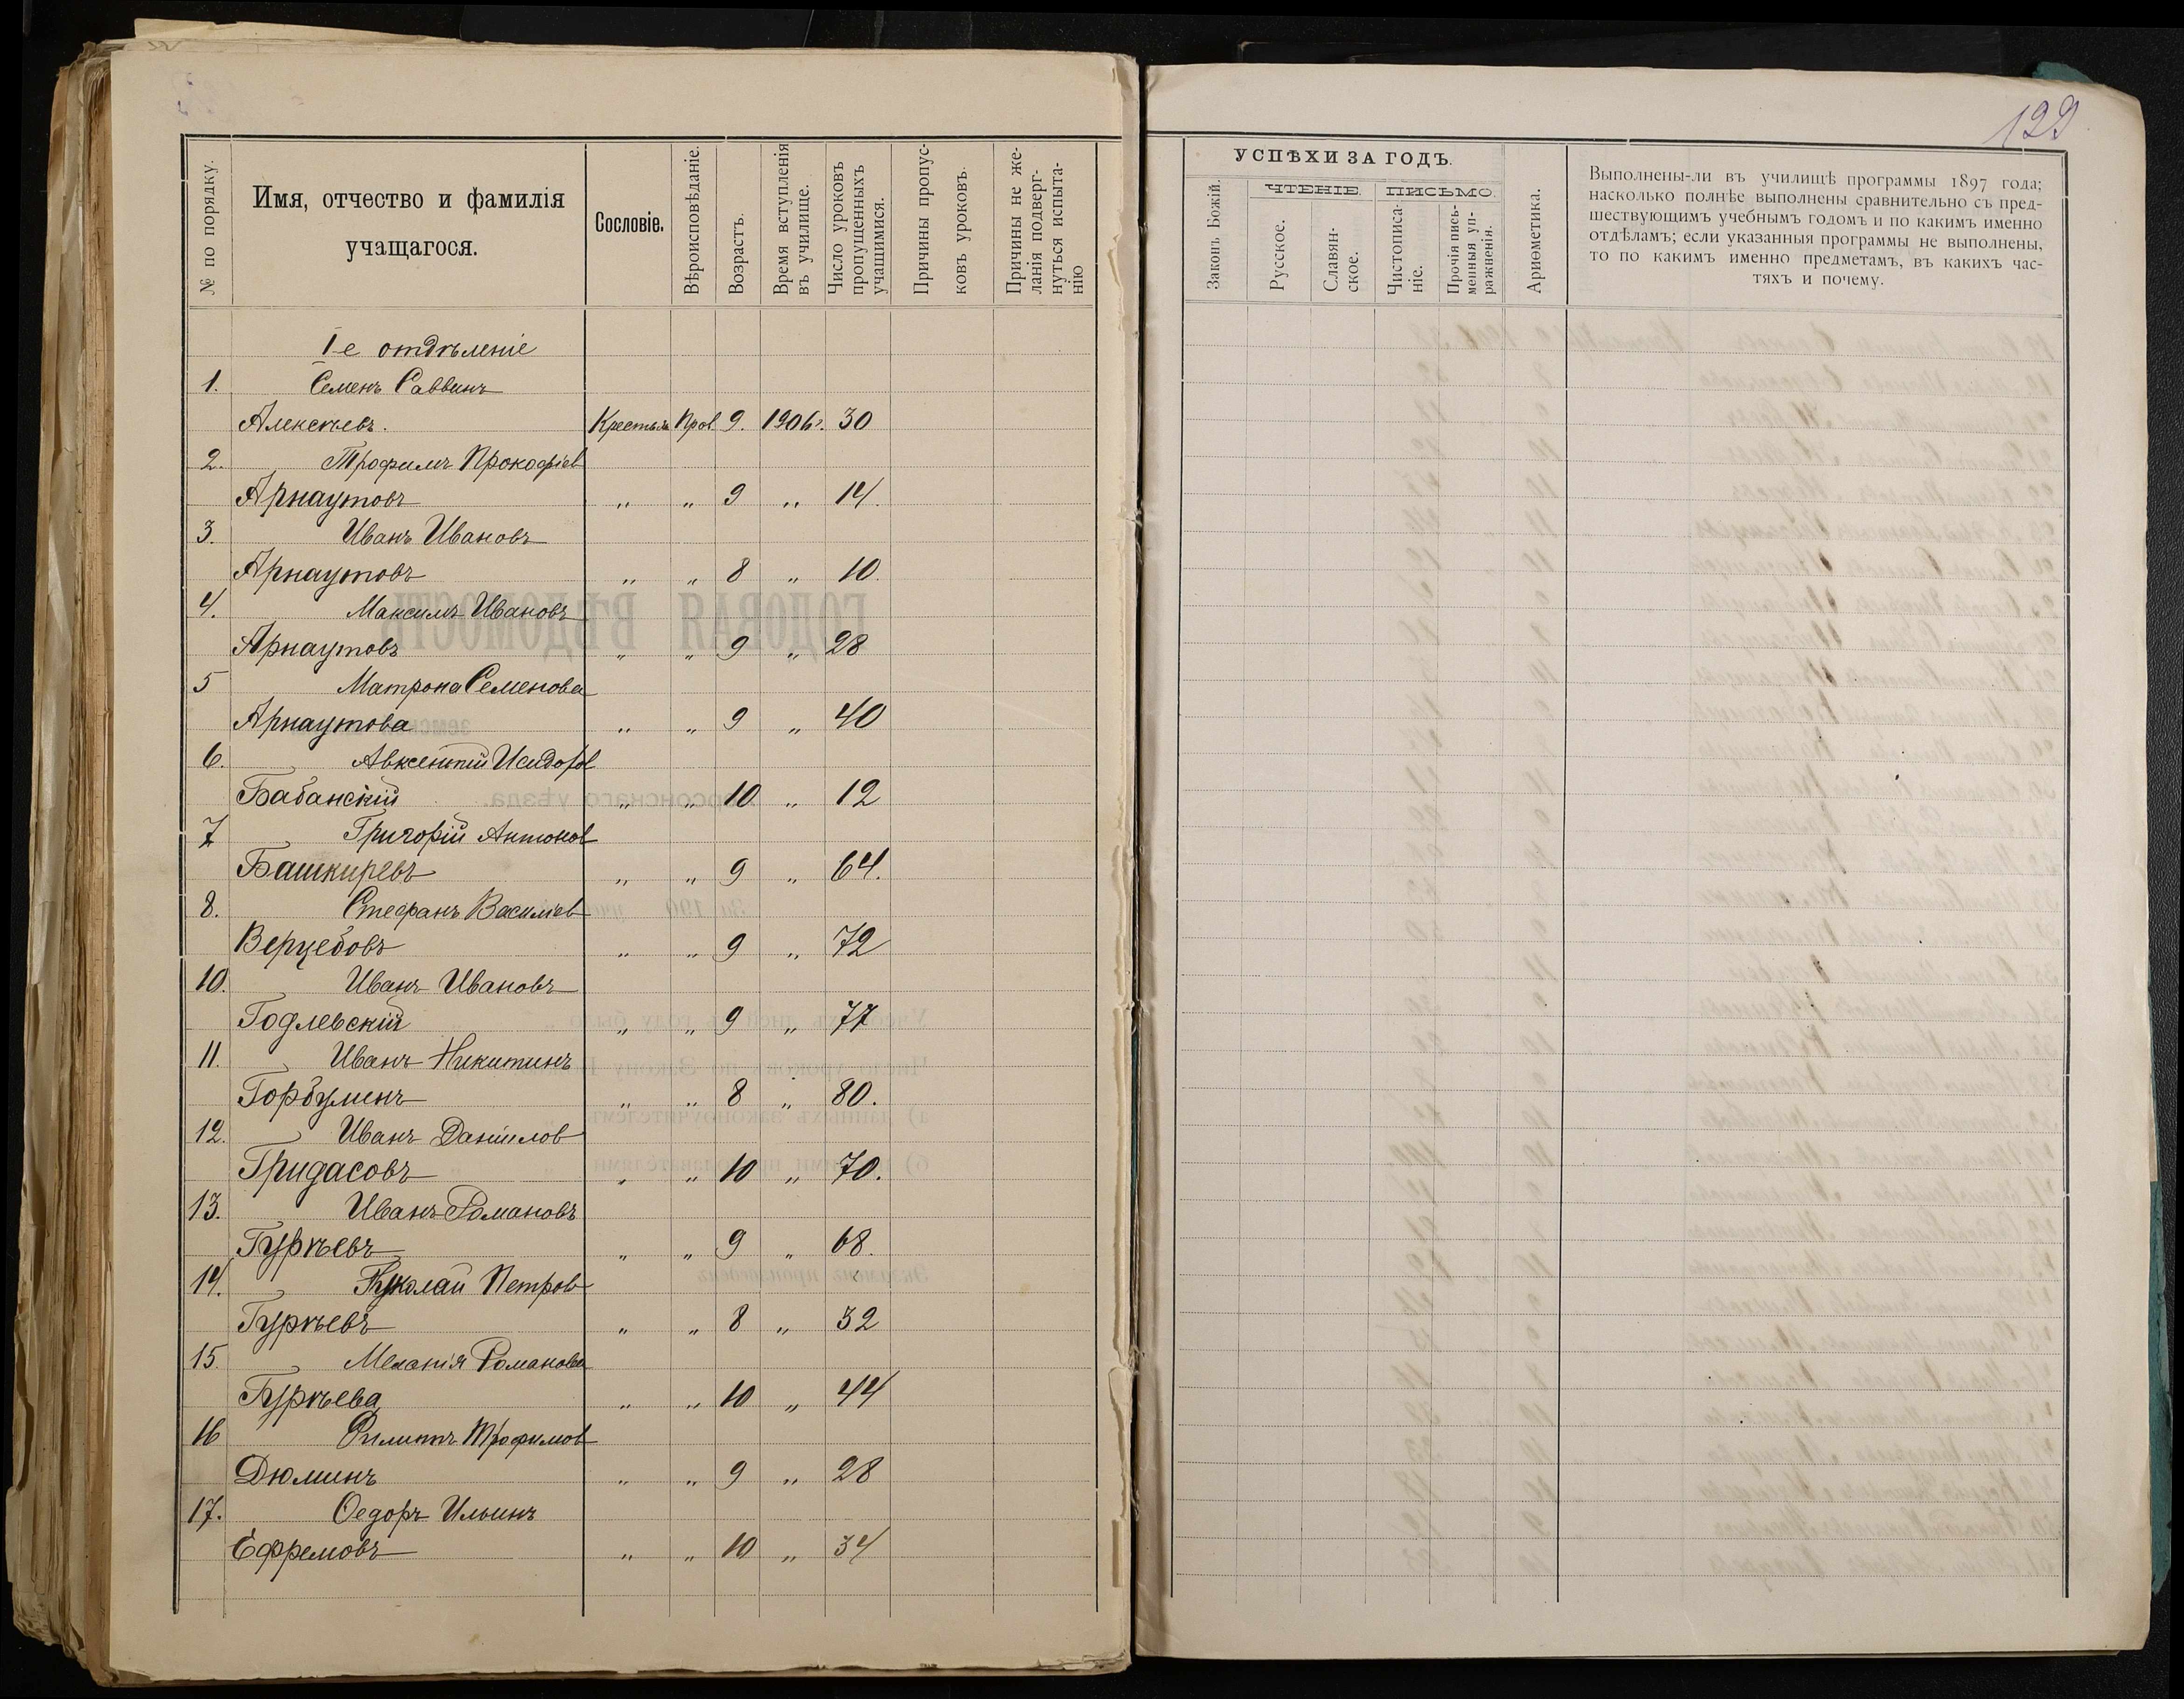 122
№ по порядку.
Имя, отчество и фамилія
учащагося.
Сословіе.
Вѣроисповѣданіе.
Возрастъ.
Время вступленія
въ училище.
Число уроковъ
пропущенныхъ
учащимися.
Причины пропус-
ковъ уроковъ.
Причины не же-
ланія подверг-
нуться испыта-
нію
1-е отдѣленіе
1. Семенъ Саввинъ
Алексѣевъ. Крестьян Прав 9. 1906г. 30
2. Трофимъ Прокофіев
Арнаутовъ „ „ 9 „ 14.
3. Иванъ Ивановъ
Арнаутовъ „ „ 8 „ 10.
4. Максимъ Ивановъ
Арнаутовъ „ „ 9 „ 28
5 Матрона Семенова
Арнаутова „ „ 9 „ 40
6. Авксентій Исидоров
Бабанскій „ „ 10 „ 12
7 Григорій Антонов
Башкиревъ „ „ 9 „ 64.
8. Стефанъ Василіев
Верцебовъ „ „ 9 „ 72
10. Иванъ Ивановъ
Годлевскій „ „ 9 „ 77
11. Иванъ Никитинъ
Горбулинъ „ „ 8 „ 80.
12. Иванъ Даніилов
Гридасовъ „ „ 10 „ 70.
13. Иванъ Романовъ
Гурѣевъ „ „ 9 „ 68.
14. Николай Петров
Гурѣевъ „ „ 8 „ 32
15. Меланія Романова
Гурѣева „ „ 10 „ 44
16 Филиппъ Трофимов
Дюминъ „ „ 9 „ 28
17. Ѳедоръ Ильинъ
Ефремовъ „ „ 10 „ 34
УСПѢХИ ЗА ГОДЪ.
Законъ Божій.
ЧТЕНІЕ.
Русское.
Славян-
ское.
ПИСЬМО.
Чистописа-
ніе.
Прочія пись-
менныя уп-
ражненія.
Ариѳметика.
Выполнены-ли въ училищѣ программы 1897 года;
насколько полнѣе выполнены сравнительно съ пред-
шествующимъ учебнымъ годомъ и по какимъ именно
отдѣламъ; если указанныя программы не выполнены,
то по какимъ именно предметамъ, въ какихъ час-
тяхъ и почему.